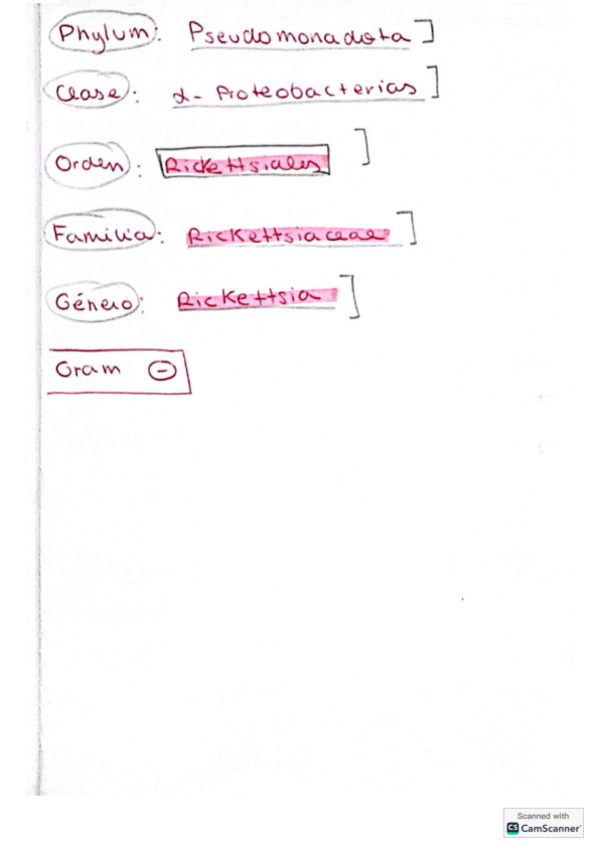 Phylum: Pseudomonadota]
Clase: α- Proteobacterias]
Orden: Rickettsiales]
Familia: Rickettsiaceae]
Género: Rickettsia]
Gram ⊖
Scanned with
CS CamScanner